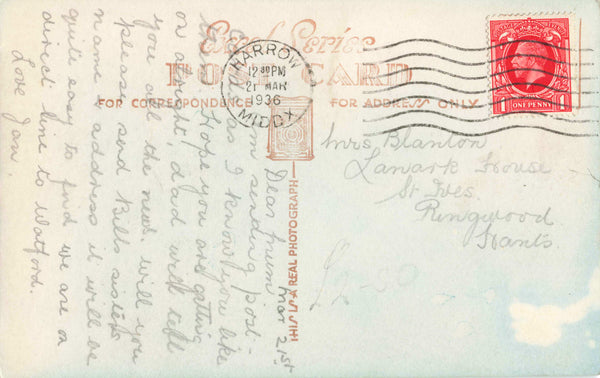 Excel Series
POST CARD
FOR CORRESPONDENCE
FOR ADDRESS ONLY
HARROW
12 30 PM
21 MAR
1936
MIDDX
ONE PENNY
THIS IS A REAL PHOTOGRAPH
Mar 21st
Dear Mum
Am sending post-
card as I know you like
Hope you are getting
on alright, dad will tell
you all the news. will you
please send Bills sisters
name & address it will be
quite easy to find we are on
direct line to Watford.
Love Jan.
Mrs. Blanton
Lanark House
St Ives
Ringwood
Hants.
£2-50